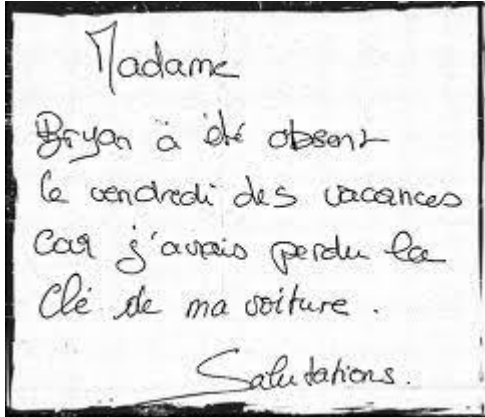 Madame
Bryan à été absent
le vendredi des vacances
car j'avais perdu la
clé de ma voiture.
Salutations.